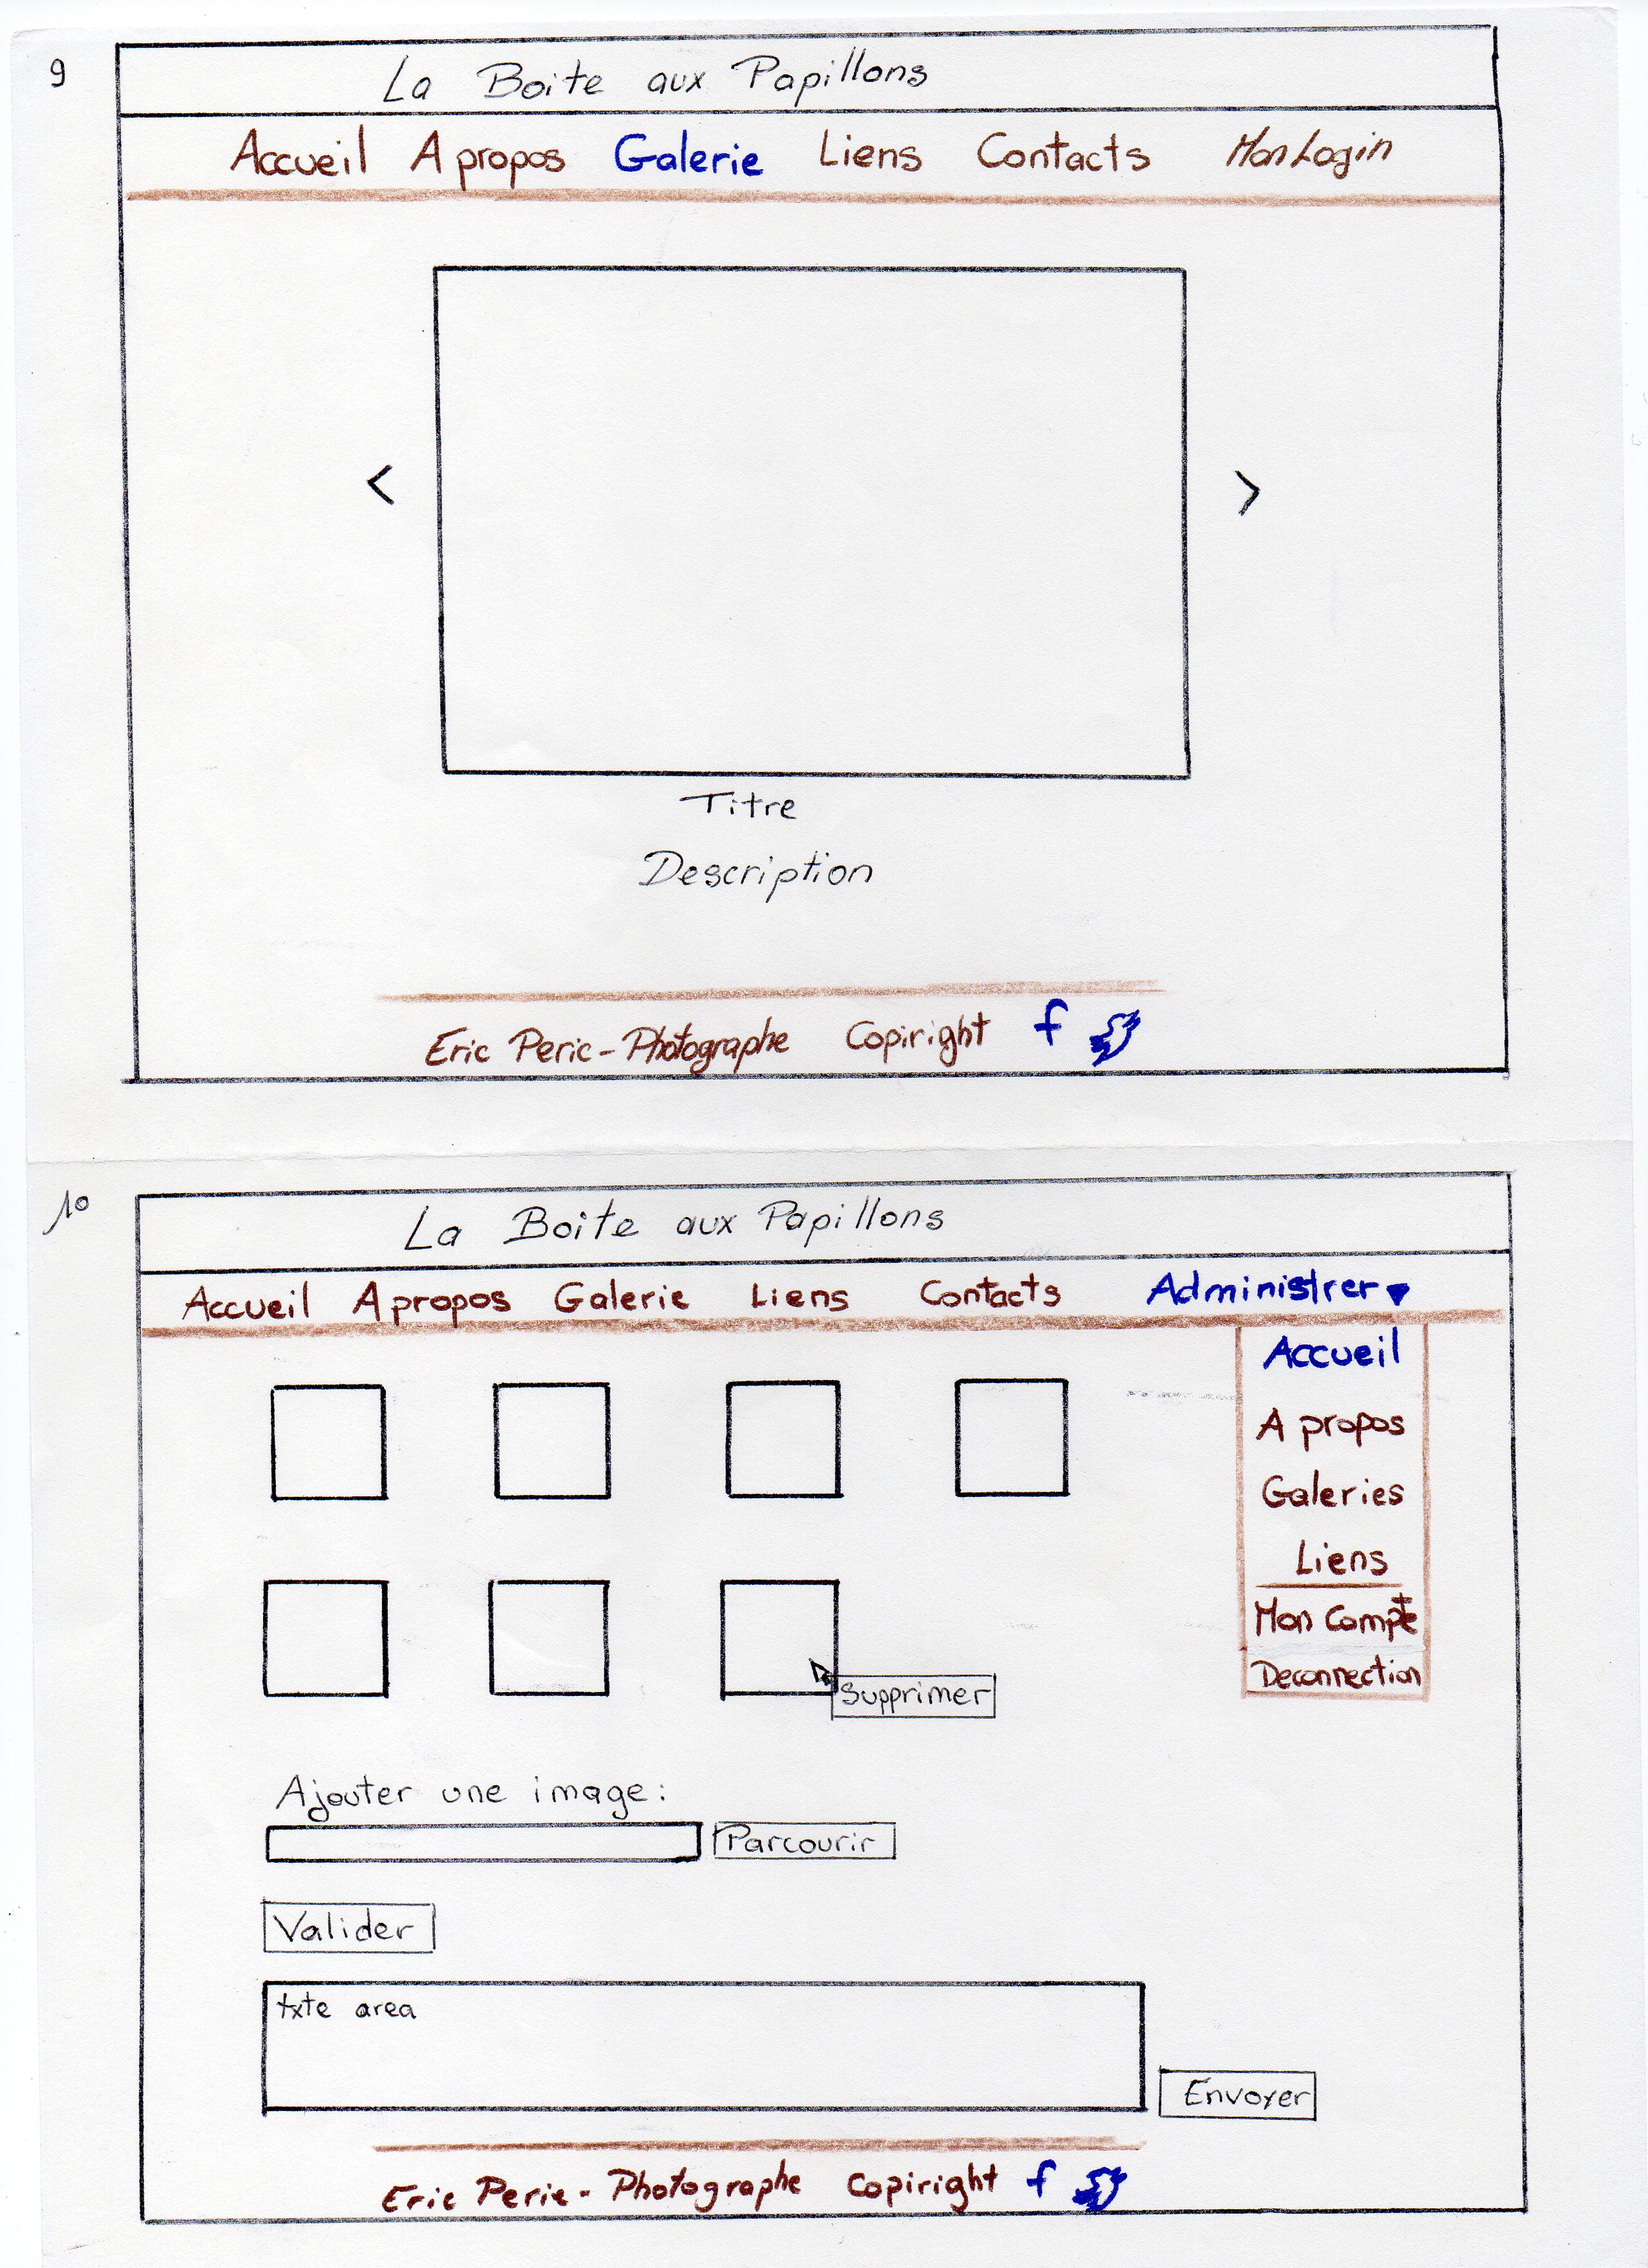 9
La Boite aux Papillons
Accueil A propos Galerie Liens Contacts Mon Login
<
>
Titre
Description
Eric Peric - Photographe Copiright f
10
La Boite aux Papillons
Accueil A propos Galerie Liens Contacts Administrer
Accueil
A propos
Galeries
Liens
Mon Compte
Deconnection
Supprimer
Ajouter une image:
Parcourir
Valider
txte area
Envoyer
Eric Peric - Photographe Copiright f